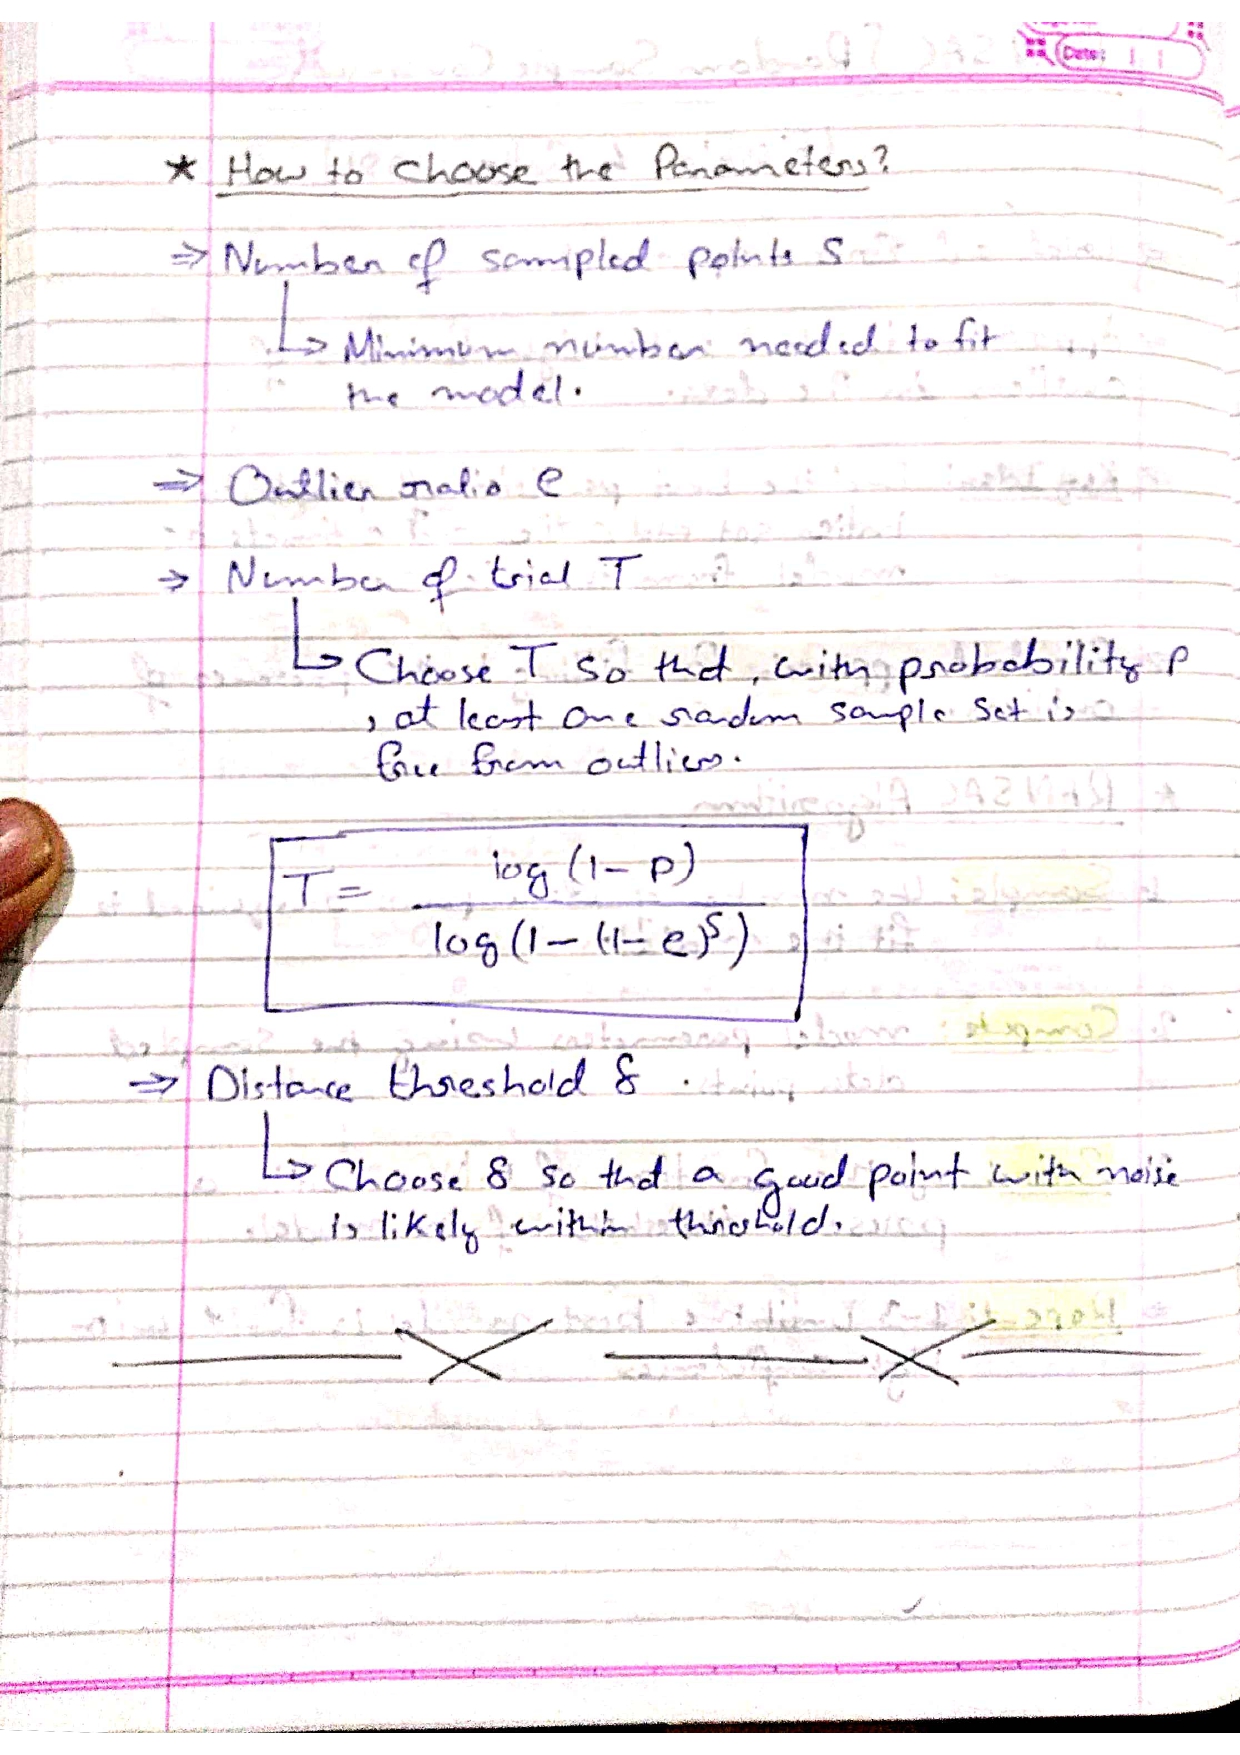 Date:
★ How to choose the Parameters?
⇒ Number of sampled points S
↳ Minimum number needed to fit
the model.
⇒ Outlier ratio e
→ Number of trial T
↳ Choose T so that, with probability p
, at least one random sample set is
free from outliers.
T = log (1- p) / log (1 - (1- e)^S)
⇒ Distance threshold δ .
↳ Choose δ so that a good point with noise
is likely within threshold.